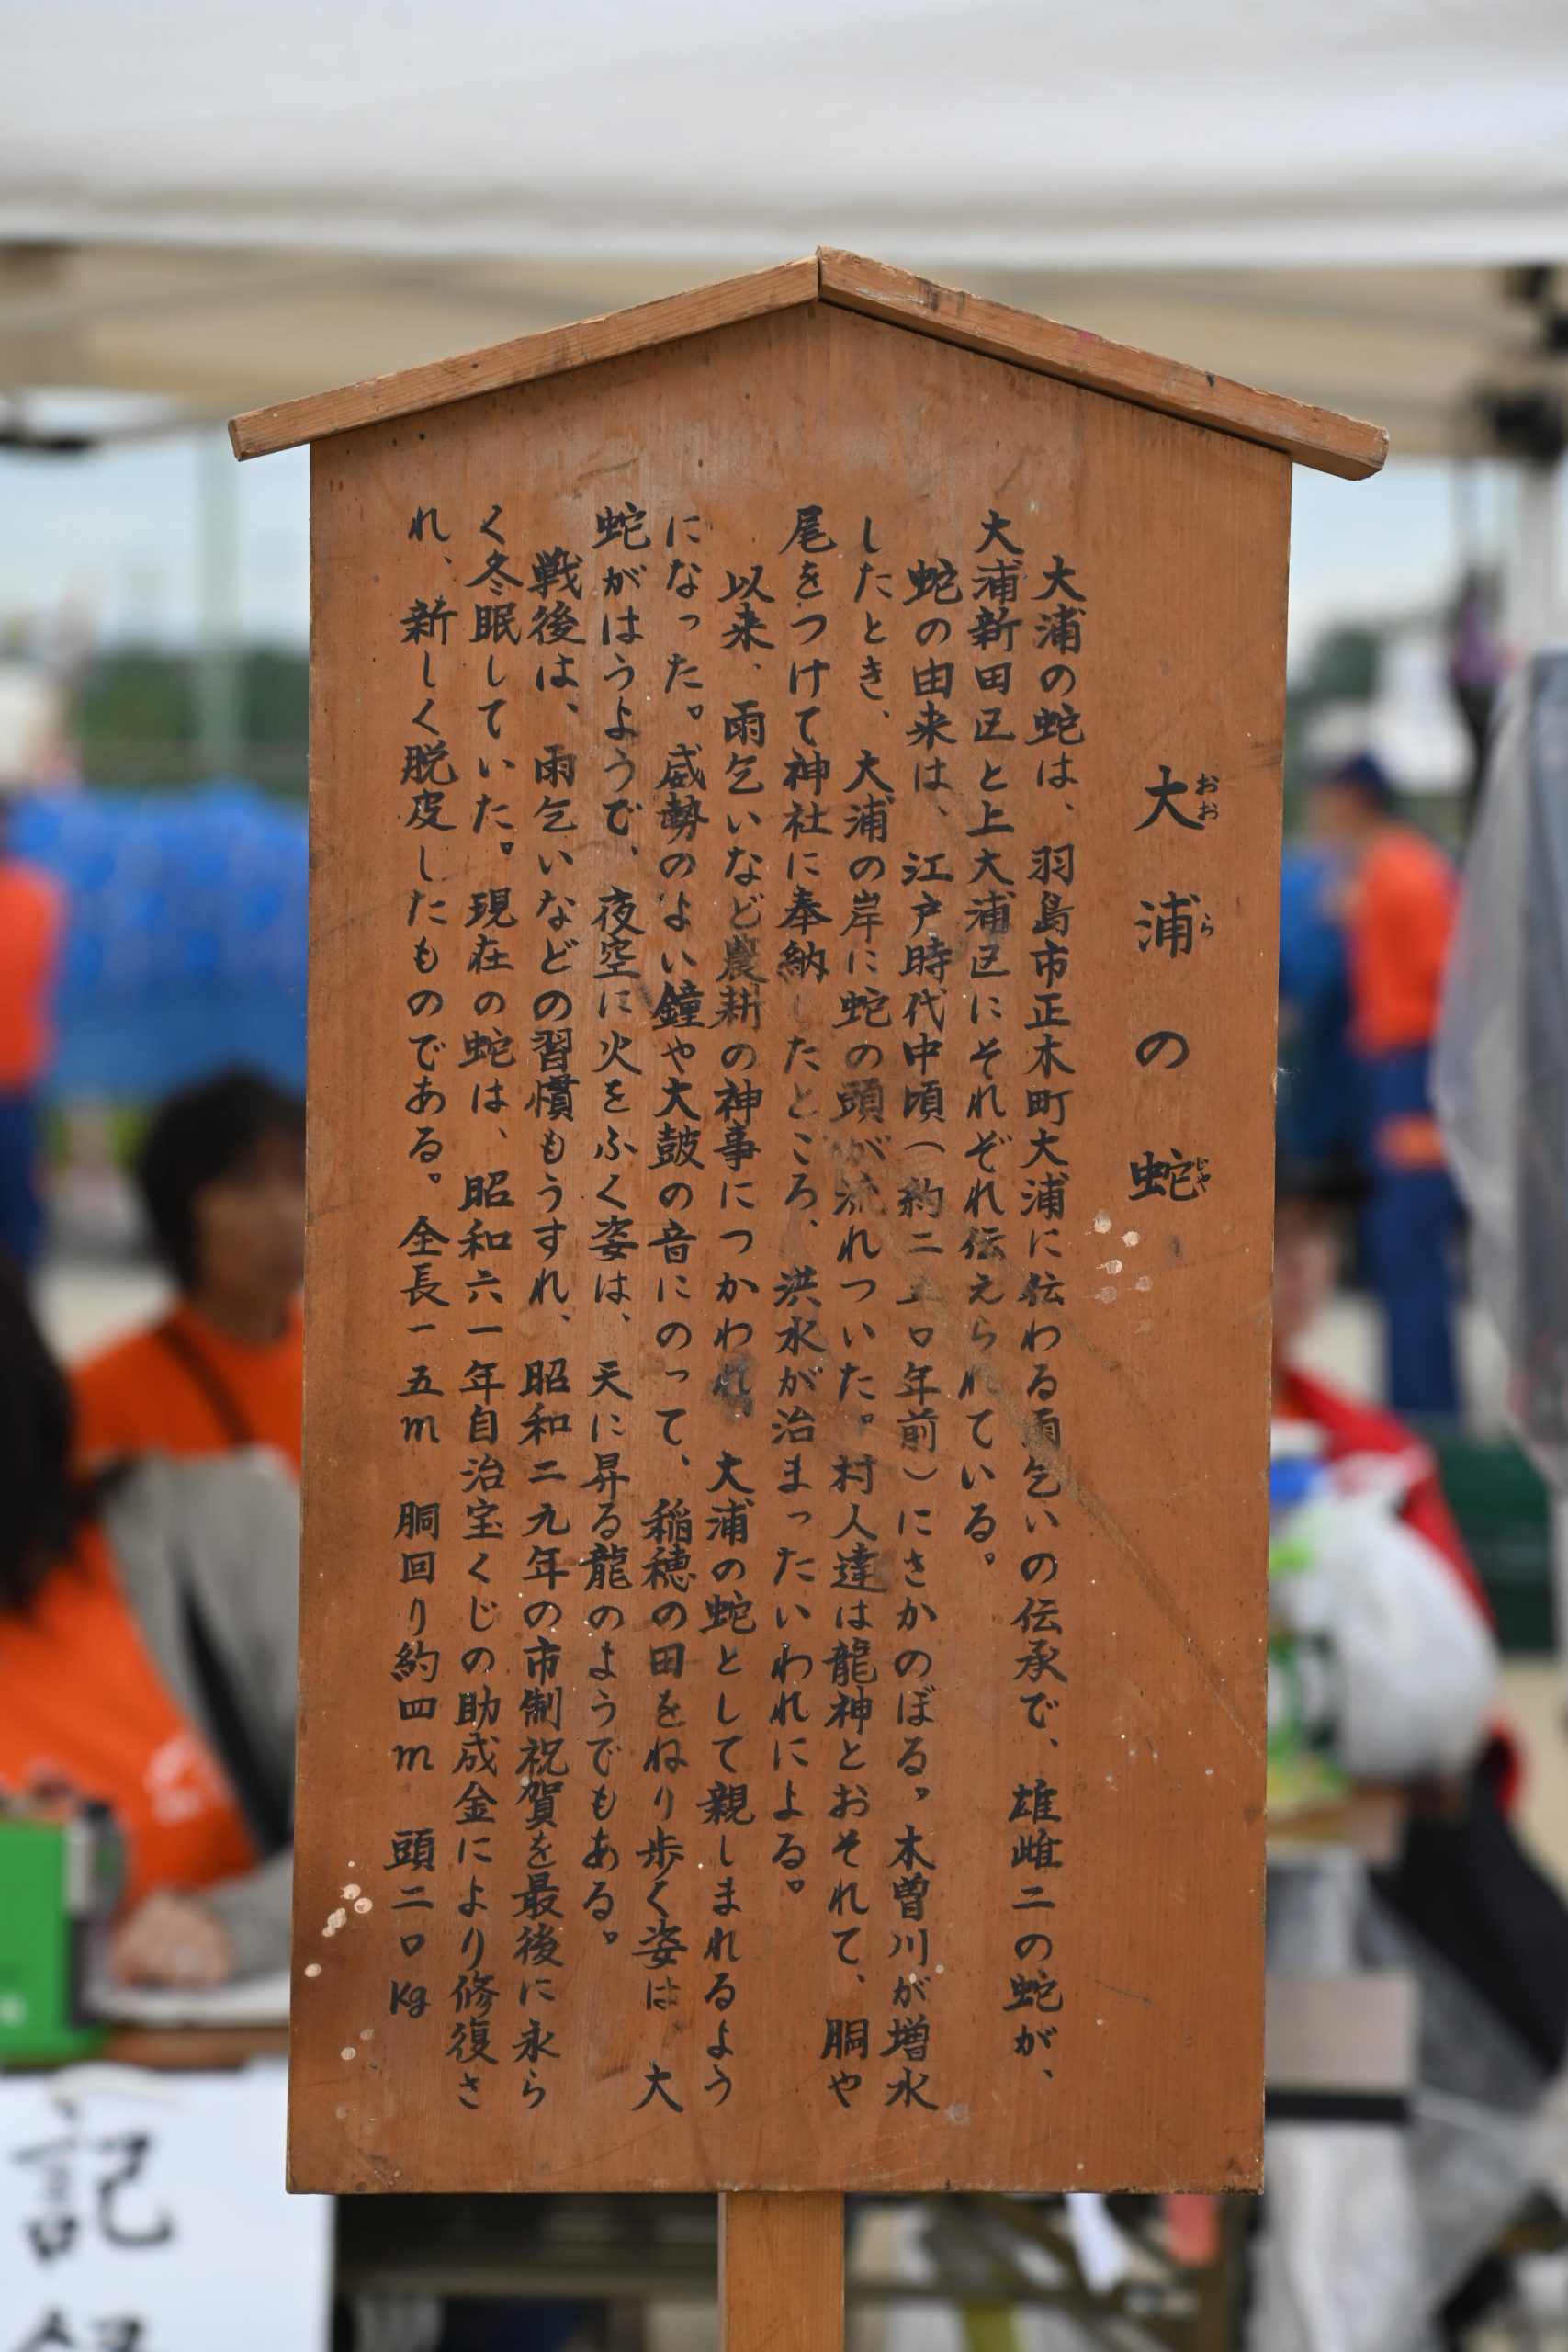 大浦の蛇
おお
ら
じゃ
大浦の蛇は、羽島市正木町大浦に伝わる雨乞いの伝承で、雄雌二の蛇が、
大浦新田区と上大浦区にそれぞれ伝えられている。
蛇の由来は、江戸時代中頃(約二五〇年前)にさかのぼる。木曽川が増水
したとき、大浦の岸に蛇の頭が流れついた。村人達は龍神とおそれて、胴や
尾をつけて神社に奉納したところ、洪水が治まったいわれによる。
以来、雨乞いなど農耕の神事につかわれ、大浦の蛇として親しまれるよう
になった。威勢のよい鐘や大鼓の音にのって、稲穂の田をねり歩く姿は 大
蛇がはうようで、夜空に火をふく姿は、天に昇る龍のようでもある。
戦後は、雨乞いなどの習慣もうすれ、昭和二九年の市制祝賀を最後に永ら
く冬眠していた。現在の蛇は、昭和六一年自治宝くじの助成金により修復さ
れ、新しく脱皮したものである。全長一五m 胴回り約四m 頭二〇kg
記